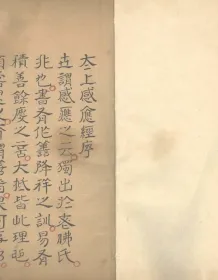 太上感應經序
世謂感應之云獨出於老聃氏
非也書有作善降祥之訓易有
積善餘慶之言大抵皆此理也